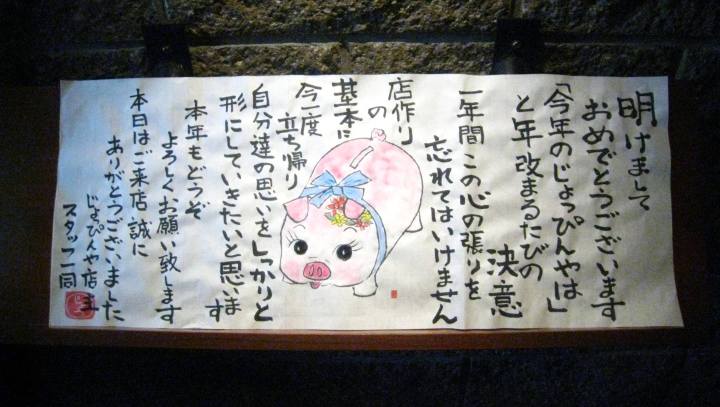 明けまして
おめでとうございます
「今年のじょっぴんやは」
と年改まるたびの
決意
一年間この心の張りを
忘れてはいけません
店作り
の
基本に
今一度
立ち帰り
自分達の思いをしっかりと
形にしていきたいと思います
本年もどうぞ
よろしくお願い致します
本日はご来店誠に
ありがとうございました
じょっぴんや店主
スタッフ一同